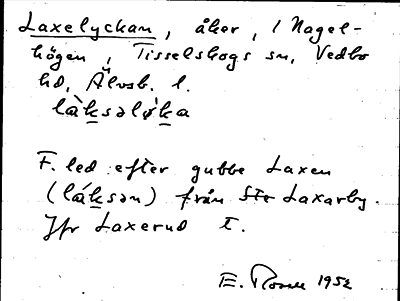 Laxelyckan, åker, 1 Nagel-
högen, Tisselskogs sn, Vedbo
hd, Älvsb. l.
låksəløka
F. led efter gubbe Laxen
(låksən) från Laxarby.
Jfr Laxerud t.
E. 1952